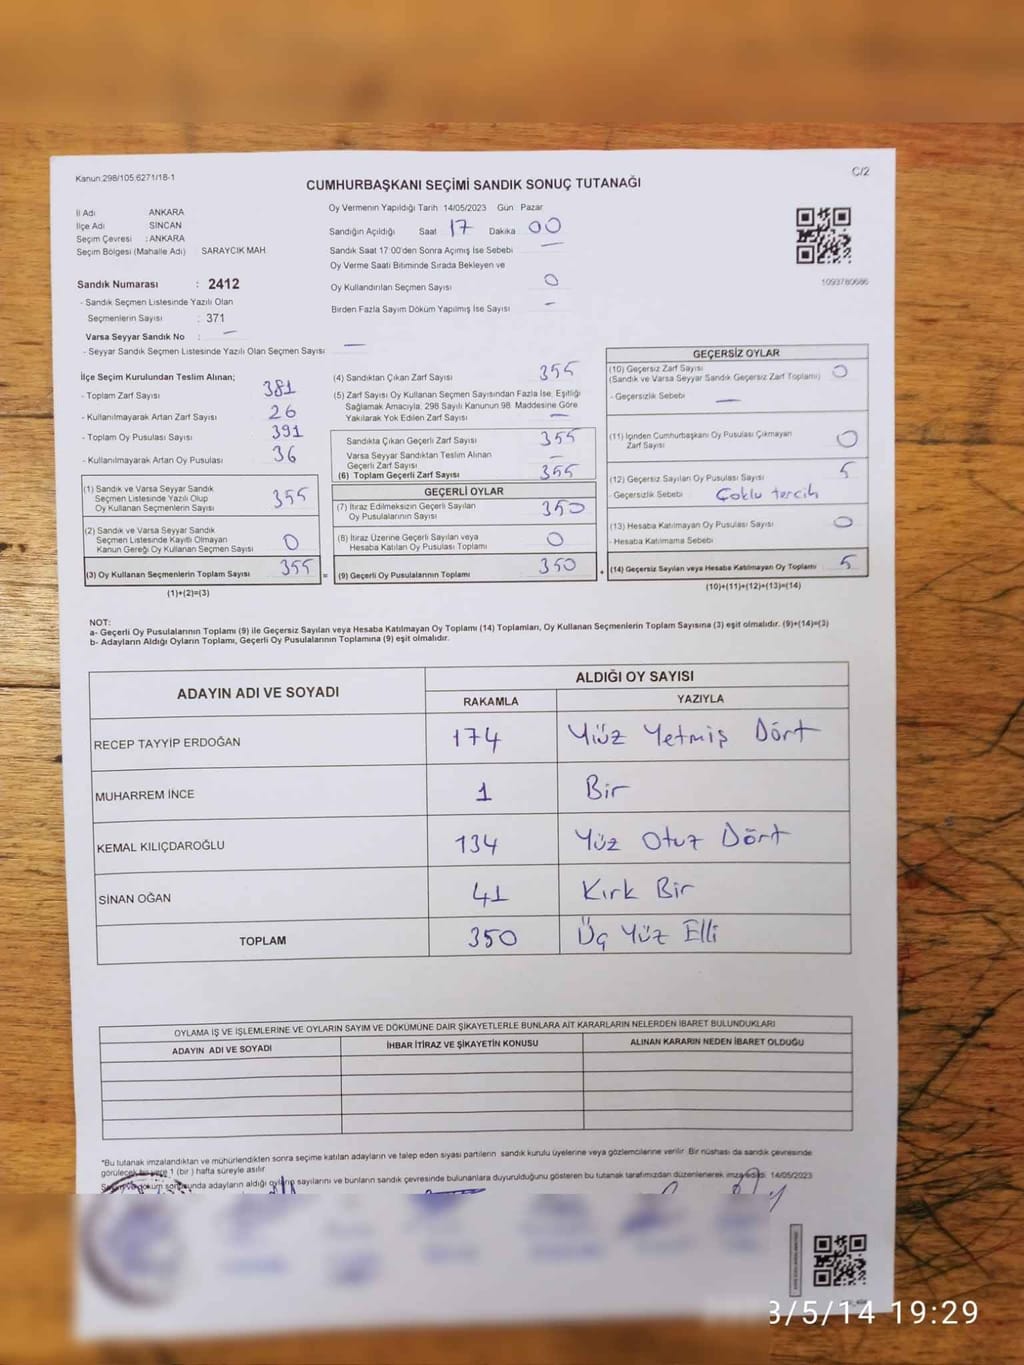 Kanun:298/105,6271/18-1
C/2
CUMHURBAŞKANI SEÇİMİ SANDIK SONUÇ TUTANAĞI
İl Adı ANKARA
İlçe Adı SİNCAN
Seçim Çevresi : ANKARA
Seçim Bölgesi (Mahalle Adı) SARAYCIK MAH
Sandık Numarası : 2412
- Sandık Seçmen Listesinde Yazılı Olan
Seçmenlerin Sayısı : 371
Varsa Seyyar Sandık No : —
- Seyyar Sandık Seçmen Listesinde Yazılı Olan Seçmen Sayısı —
Oy Vermenin Yapıldığı Tarih 14/05/2023 Gün Pazar
Sandığın Açıldığı Saat 17 Dakika 00
Sandık Saat 17:00'den Sonra Açımış İse Sebebi —
Oy Verme Saati Bitiminde Sırada Bekleyen ve
Oy Kullandırılan Seçmen Sayısı 0
Birden Fazla Sayım Döküm Yapılmış İse Sayısı —
1093780686
İlçe Seçim Kurulundan Teslim Alınan;
- Toplam Zarf Sayısı 381
- Kullanılmayarak Artan Zarf Sayısı 26
- Toplam Oy Pusulası Sayısı 391
- Kullanılmayarak Artan Oy Pusulası 36
(1) Sandık ve Varsa Seyyar Sandık
Seçmen Listesinde Yazılı Olup
Oy Kullanan Seçmenlerin Sayısı 355
(2) Sandık ve Varsa Seyyar Sandık
Seçmen Listesinde Kayıtlı Olmayan
Kanun Gereği Oy Kullanan Seçmen Sayısı 0
(3) Oy Kullanan Seçmenlerin Toplam Sayısı 355 =
(1)+(2)=(3)
(4) Sandıktan Çıkan Zarf Sayısı 355
(5) Zarf Sayısı Oy Kullanan Seçmen Sayısından Fazla İse, Eşitliği
Sağlamak Amacıyla, 298 Sayılı Kanunun 98. Maddesine Göre
Yakılarak Yok Edilen Zarf Sayısı —
Sandıkta Çıkan Geçerli Zarf Sayısı 355
Varsa Seyyar Sandıktan Teslim Alınan
Geçerli Zarf Sayısı —
(6) Toplam Geçerli Zarf Sayısı 355
GEÇERLİ OYLAR
(7) İtiraz Edilmeksizin Geçerli Sayılan
Oy Pusulalarının Sayısı 350
(8) İtiraz Üzerine Geçerli Sayılan veya
Hesaba Katılan Oy Pusulası Toplamı 0
(9) Geçerli Oy Pusulalarının Toplamı 350 +
GEÇERSİZ OYLAR
(10) Geçersiz Zarf Sayısı
(Sandık ve Varsa Seyyar Sandık Geçersiz Zarf Toplamı) 0
- Geçersizlik Sebebi —
(11) İçinden Cumhurbaşkanı Oy Pusulası Çıkmayan
Zarf Sayısı 0
(12) Geçersiz Sayılan Oy Pusulası Sayısı 5
- Geçersizlik Sebebi Çoklu tercih
(13) Hesaba Katılmayan Oy Pusulası Sayısı 0
- Hesaba Katılmama Sebebi
(14) Geçersiz Sayılan veya Hesaba Katılmayan Oy Toplamı 5
(10)+(11)+(12)+(13)=(14)
NOT:
a- Geçerli Oy Pusulalarının Toplamı (9) ile Geçersiz Sayılan veya Hesaba Katılmayan Oy Toplamı (14) Toplamları, Oy Kullanan Seçmenlerin Toplam Sayısına (3) eşit olmalıdır. (9)+(14)=(3)
b- Adayların Aldığı Oyların Toplamı, Geçerli Oy Pusulalarının Toplamına (9) eşit olmalıdır.
ADAYIN ADI VE SOYADI
ALDIĞI OY SAYISI
RAKAMLA YAZIYLA
RECEP TAYYİP ERDOĞAN 174 Yüz Yetmiş Dört
MUHARREM İNCE 1 Bir
KEMAL KILIÇDAROĞLU 134 Yüz Otuz Dört
SİNAN OĞAN 41 Kırk Bir
TOPLAM 350 Üç Yüz Elli
OYLAMA İŞ VE İŞLEMLERİNE VE OYLARIN SAYIM VE DÖKÜMÜNE DAİR ŞİKAYETLERLE BUNLARA AİT KARARLARIN NELERDEN İBARET BULUNDUKLARI
ADAYIN ADI VE SOYADI İHBAR İTİRAZ VE ŞİKAYETİN KONUSU ALINAN KARARIN NEDEN İBARET OLDUĞU
*Bu tutanak imzalandıktan ve mühürlendikten sonra seçime katılan adayların ve talep eden siyasi partilerin sandık kurulu üyelerine veya gözlemcilerine verilir. Bir nüshası da sandık çevresinde
görülecek bir yere 1 (bir) hafta süreyle asılır.
döküm sonunda adayların aldığı oyların sayılarını ve bunların sandık çevresinde bulunanlara duyurulduğunu gösteren bu tutanak tarafımızdan düzenlenerek imza edildi. 14/05/2023
3/5/14 19:29